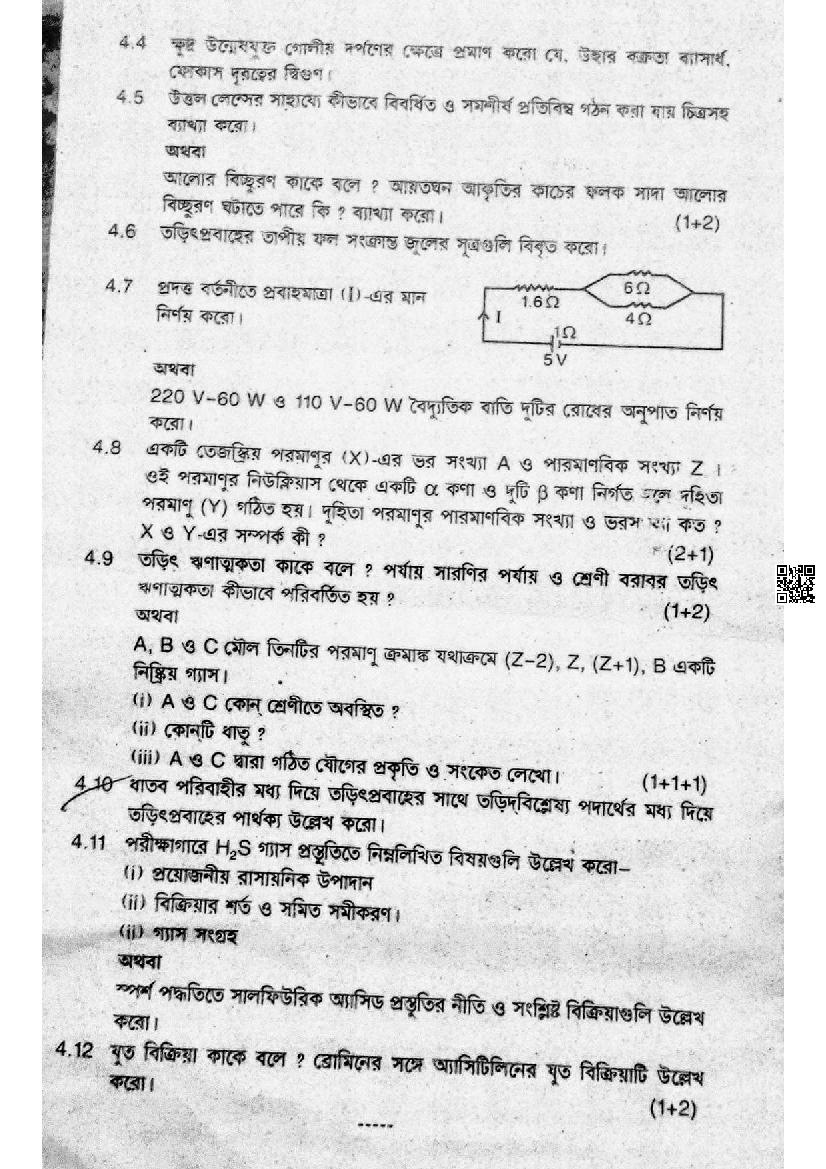 4.4 ক্ষুদ্র উন্মেষযুক্ত গোলীয় দর্পণের ক্ষেত্রে প্রমাণ করো যে, উহার বক্রতা ব্যাসার্ধ,
ফোকাস দূরত্বের দ্বিগুণ।
4.5 উত্তল লেন্সের সাহায্যে কীভাবে বিবর্ধিত ও সমশীর্ষ প্রতিবিম্ব গঠন করা যায় চিত্রসহ
ব্যাখ্যা করো।
অথবা
আলোর বিচ্ছুরণ কাকে বলে ? আয়তঘন আকৃতির কাচের ফলক সাদা আলোর
বিচ্ছুরণ ঘটাতে পারে কি ? ব্যাখ্যা করো। (1+2)
4.6 তড়িৎপ্রবাহের তাপীয় ফল সংক্রান্ত জুলের সূত্রগুলি বিবৃত করো।
4.7 প্রদত্ত বর্তনীতে প্রবাহমাত্রা (I)-এর মান
নির্ণয় করো।
1.6Ω
6Ω
4Ω
I
1Ω
5V
অথবা
220 V–60 W ও 110 V–60 W বৈদ্যুতিক বাতি দুটির রোধের অনুপাত নির্ণয়
করো।
4.8 একটি তেজস্ক্রিয় পরমাণুর (X)-এর ভর সংখ্যা A ও পারমাণবিক সংখ্যা Z ।
ওই পরমাণুর নিউক্লিয়াস থেকে একটি α কণা ও দুটি β কণা নির্গত হলে দুহিতা
পরমাণু (Y) গঠিত হয়। দুহিতা পরমাণুর পারমাণবিক সংখ্যা ও কত ?
X ও Y-এর সম্পর্ক কী ? (2+1)
4.9 তড়িৎ ঋণাত্মকতা কাকে বলে ? পর্যায় সারণির পর্যায় ও শ্রেণী বরাবর তড়িৎ
ঋণাত্মকতা কীভাবে পরিবর্তিত হয় ? (1+2)
অথবা
A, B ও C মৌল তিনটির পরমাণু ক্রমাঙ্ক যথাক্রমে (Z–2), Z, (Z+1), B একটি
নিষ্ক্রিয় গ্যাস।
(i) A ও C কোন্ শ্রেণীতে অবস্থিত ?
(ii) কোন্‌টি ধাতু ?
(iii) A ও C দ্বারা গঠিত যৌগের প্রকৃতি ও সংকেত লেখো। (1+1+1)
4.10 ধাতব পরিবাহীর মধ্য দিয়ে তড়িৎপ্রবাহের সাথে তড়িদ্‌বিশ্লেষ্য পদার্থের মধ্য দিয়ে
তড়িৎপ্রবাহের পার্থক্য উল্লেখ করো।
4.11 পরীক্ষাগারে H₂S গ্যাস প্রস্তুতিতে নিম্নলিখিত বিষয়গুলি উল্লেখ করো–
(i) প্রয়োজনীয় রাসায়নিক উপাদান
(ii) বিক্রিয়ার শর্ত ও সমিত সমীকরণ।
(ii) গ্যাস সংগ্রহ
অথবা
স্পর্শ পদ্ধতিতে সালফিউরিক অ্যাসিড প্রস্তুতির নীতি ও সংশ্লিষ্ট বিক্রিয়াগুলি উল্লেখ
করো।
4.12 যুত বিক্রিয়া কাকে বলে ? ব্রোমিনের সঙ্গে অ্যাসিটিলিনের যুত বিক্রিয়াটি উল্লেখ
করো।
(1+2)
-----